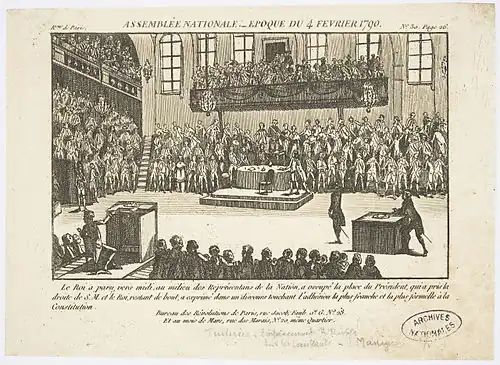 Ron. de Paris.
ASSEMBLÉE NATIONALE. EPOQUE DU 4 FEVRIER 1790.
No. 30. Page 26.
Le Roi a paru, vers midi, au milieu des Représentans de la Nation, a occupé la place du Président, qui a pris la
droite de S. M. et le Roi, restant de bout, a exprimé dans un discours touchant l'adhésion la plus franche et la plus formelle à la
Constitution.
Bureau des Révolutions de Paris, rue Jacob, Faub. St. G. No. 28.
Et au mois de Mars, rue des Marais, No. 20, même Quartier.
ARCHIVES
NATIONALES